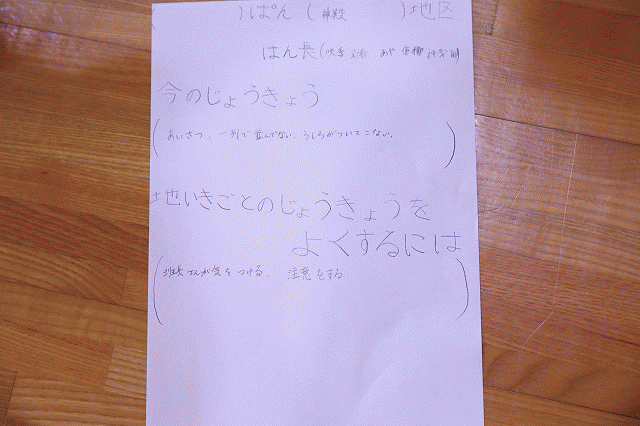 )ぱん ( 神殿 )地区
はん長(
今のじょうきょう
(あいさつ、一列で並んでない、うしろがついてこない。)
地いきごとのじょうきょうを
よくするには
(班長さんが気をつける、 注意をする)